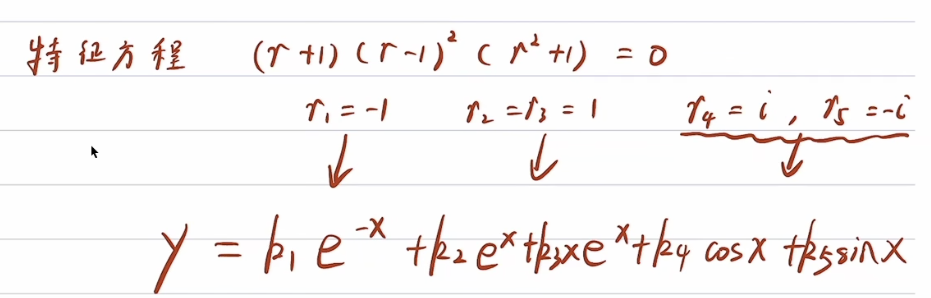 特征方程 (r+1)(r-1)²(r²+1) = 0
r₁=-1 r₂=r₃=1 r₄=i, r₅=-i
y = k₁e⁻ˣ+k₂eˣ+k₃xeˣ+k₄cosx+k₅sinx